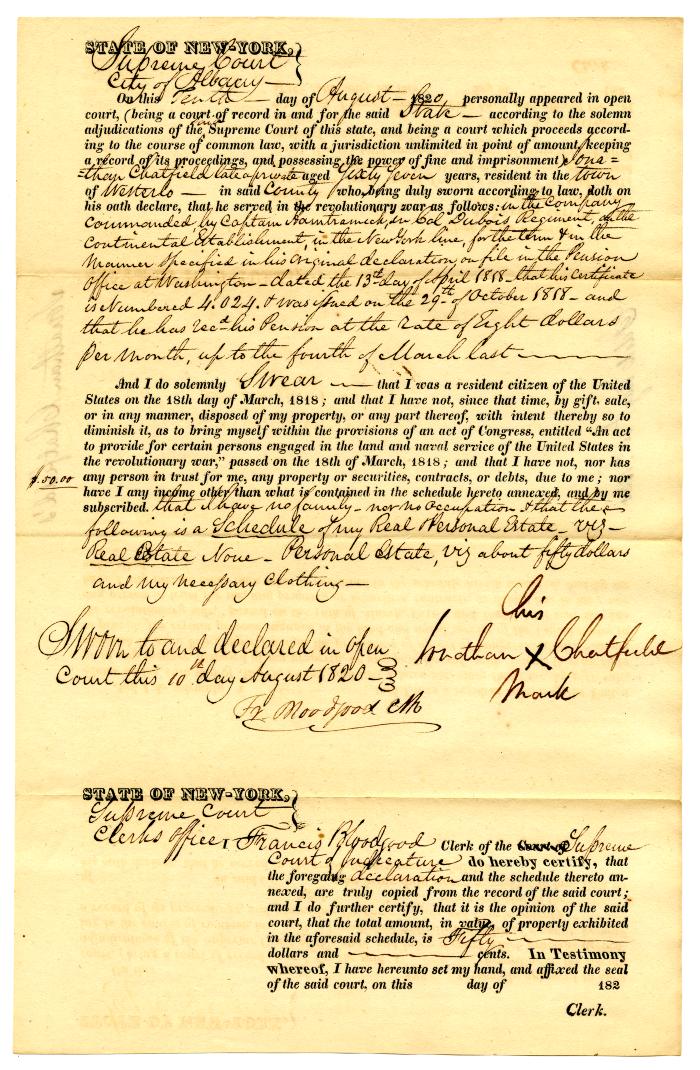 STATE OF NEW-YORK,
Supreme Court
City of Albany—
On this Tenth — day of August — 1820 personally appeared in open
court, (being a court of record in and for the said State — according to the solemn
adjudications of the Supreme Court of this state, and being a court which proceeds accord-
ing to the course of common law, with a jurisdiction unlimited in point of amount, keeping
a record of its proceedings, and possessing the power of fine and imprisonment) Jona=
=than Chatfield late a private aged Sixty Seven years, resident in the town
of Westerlo — in said County who, being duly sworn according to law, doth on
his oath declare, that he served in the revolutionary war as follows: in the Company
commanded by Captain Hamtramick, in Col. Dubois Regiment, on the
Continental Establishment, in the New York line, for the term & in the
Manner specified in his original declaration on file in the Pension
Office at Washington — dated the 13th day of April 1818 — that his certificate
is Numbered 4.024. & was issued on the 29th of October 1818 — and
that he has recd his Pension at the rate of Eight dollars
per month, up to the fourth of March last ———
And I do solemnly Swear — that I was a resident citizen of the United
States on the 18th day of March, 1818; and that I have not, since that time, by gift, sale,
or in any manner, disposed of my property, or any part thereof, with intent thereby so to
diminish it, as to bring myself within the provisions of an act of Congress, entitled “An act
to provide for certain persons engaged in the land and naval service of the United States in
the revolutionary war,” passed on the 18th of March, 1818; and that I have not, nor has
any person in trust for me, any property or securities, contracts, or debts, due to me; nor
$50.00
have I any income other than what is contained in the schedule hereto annexed, and by me
subscribed. that I have no family — nor no occupation & that the
following is a Schedule of my Real & Personal Estate — viz —
Real Estate None — Personal Estate, viz about fifty dollars
and my necessary Clothing —
his
Jonathan X Chatfield
Mark
Sworn to and declared in open
Court this 10th day August 1820 —
Fr. Bloodgood Clk
STATE OF NEW-YORK,
Supreme Court
Clerks office I Francis Bloodgood Clerk of the Supreme
Court of Judicature do hereby certify, that
the foregoing declaration and the schedule thereto an-
nexed, are truly copied from the record of the said court;
and I do further certify, that it is the opinion of the said
court, that the total amount, in value, of property exhibited
in the aforesaid schedule, is Fifty ———
dollars and ——— cents. In Testimony
whereof, I have hereunto set my hand, and affixed the seal
of the said court, on this day of 182
Clerk.